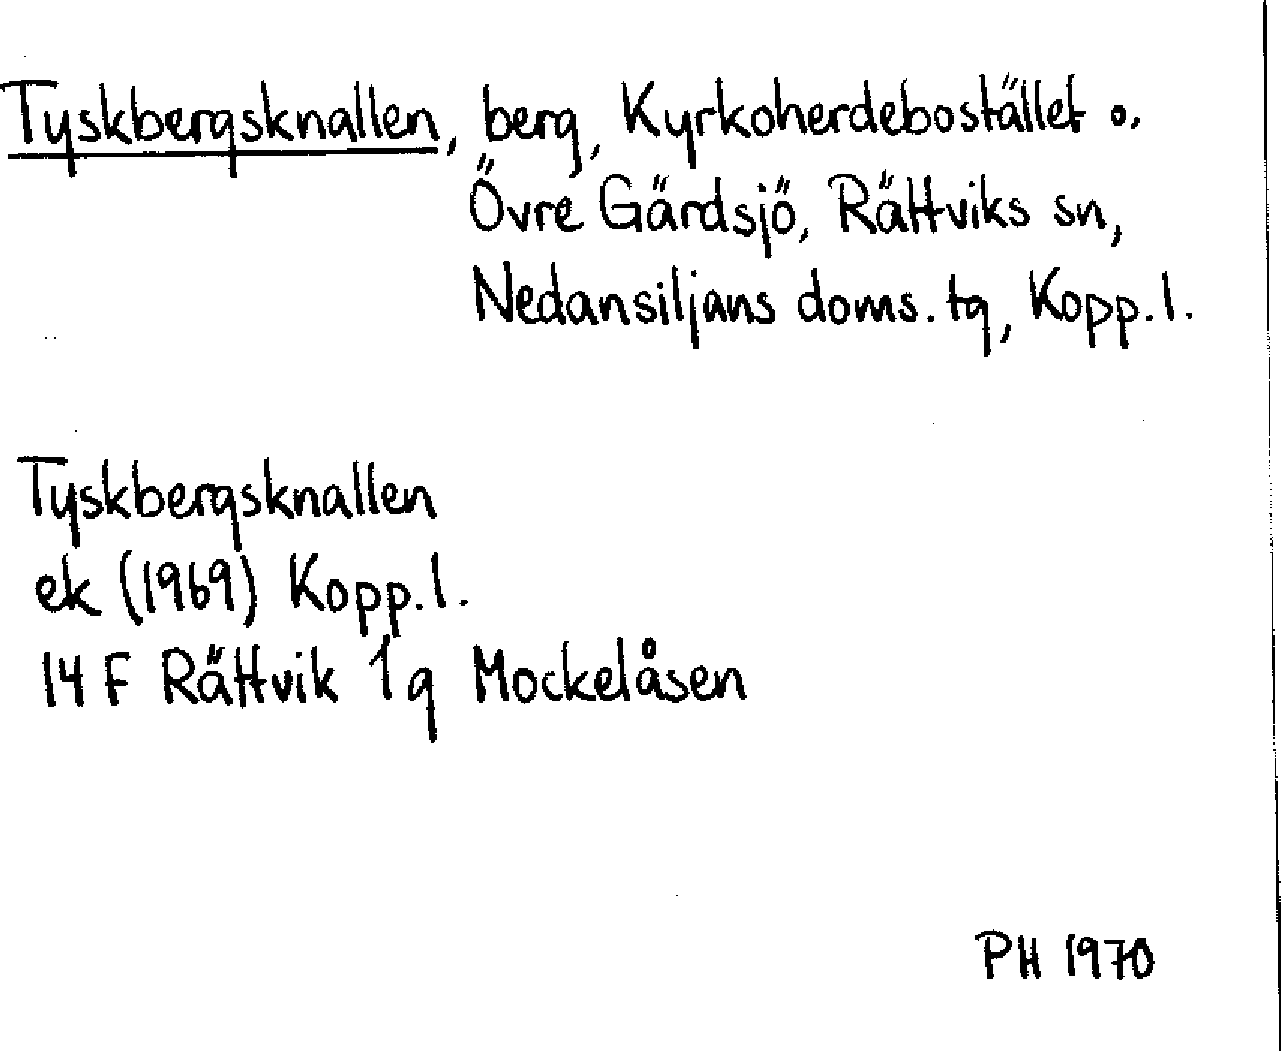 Tyskbergsknallen, berg, Kyrkoherdebostället o.
Övre Gärdsjö, Rättviks sn,
Nedansiljans doms. tg, Kopp. l.
Tyskbergsknallen
ek (1969) Kopp. l.
14 F Rättvik 1g Mockelåsen
PH 1970